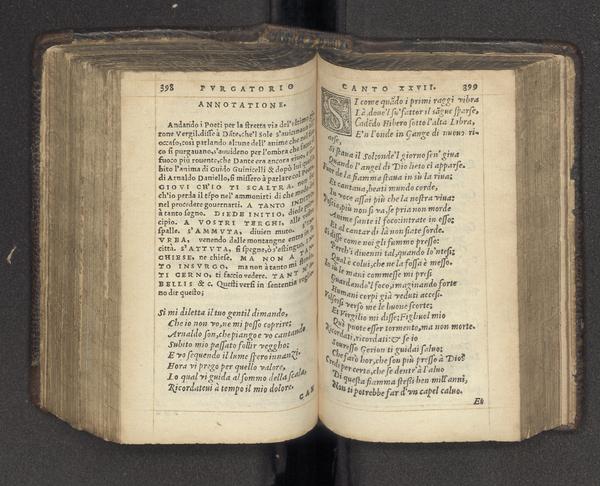 398 PVRGATORIO
ANNOTATIONE.
Andando i Poeti per la stretta via del'ultimo
tone Vergil. disse à Dãte, che'l Sole s'auicinaua
occaso, così parlando alcune dell'anime che nel
co si purgauano, s'auuideno per l'ombra che faceua
fuoco più rouente, che Dante era ancora viuo,
bito l'anima di Guido Guinicelli & dopò lui
di Arnaldo Daniello, si missero à parlare col Poeta
GIOVI CH'IO TI SCALTRA.
ch'io perda il tẽpo nel'ammonirti di che modo
nel procedere gouernarti. A TANTO INDITIO
à tanto segno. DIEDE INITIO, diede
cipio. A VOSTRI TERGHI, alle vostre
spalle. S'AMMVTA, diuien muto. S'INVRBA,
VRBA, venendo dalle montagne entra in la
città. S'ATTVTA, si spegne, ò s'estingue.
CHIESE, ne chiese. MA NON A TAN
TO INSVRGO. ma non à tanto mi
TI CERNO, ti faccio vedere. TANT M'A
BELLIS & c. Questi versi in sententia voglio
no dir questo;
Si mi diletta il tuo gentil dimando,
Che io non vo, ne mi posso coprire;
Arnaldo son, che piango e vo cantando
Subito mio passato follir veggho;
E vo sequendo il lume spero innanzi.
Hora vi prego per quello valore,
Lo qual vi guida al sommo della scala,
Ricordateui à tempo il mio dolore.
CAN
CANTO XXVII. 399
SI come quãdo i primi raggi vibra
Là doue'l su'fattor il sãgue sparse,
Cadẽdo Hibero sotto l'alta Libra,
E'n l'onde in Gange di nuouo ri-
arse,
Si staua il Sol: onde'l giorno sen' giua
Quando l'angel di Dio lieto ci apparse.
Fuor de la fiamma staua in sù la riua;
Et cantaua, beati mundo corde,
In voce assai più che la nostra viua:
Poscia, più non si va, se pria non morde
Anime sante il foco: intrate in esso;
Et al cantar di là non siate sorde.
Si disse come noi gli fummo presso:
Perch'i diuenni tal, quando lo'ntesi;
Qual è colui, che ne la fossa è messo.
In sù le mani commesse mi presi
Guardando'l foco, imaginando forte
Humani corpi già veduti accesi.
Volsersi verso me le buone scorte;
Et Virgilio mi disse; Figliuol mio
Quà puote esser tormento, ma non morte.
Ricordati, ricordati: & se io
Souresso Gerion ti guidai saluo;
Che farò hor, che son più presso à Dio?
Credi per certo, che se dentr'à l'aluo
Di questa fiamma stessi ben mill'anni,
Non ti potrebbe far d'vn capel caluo.
Et